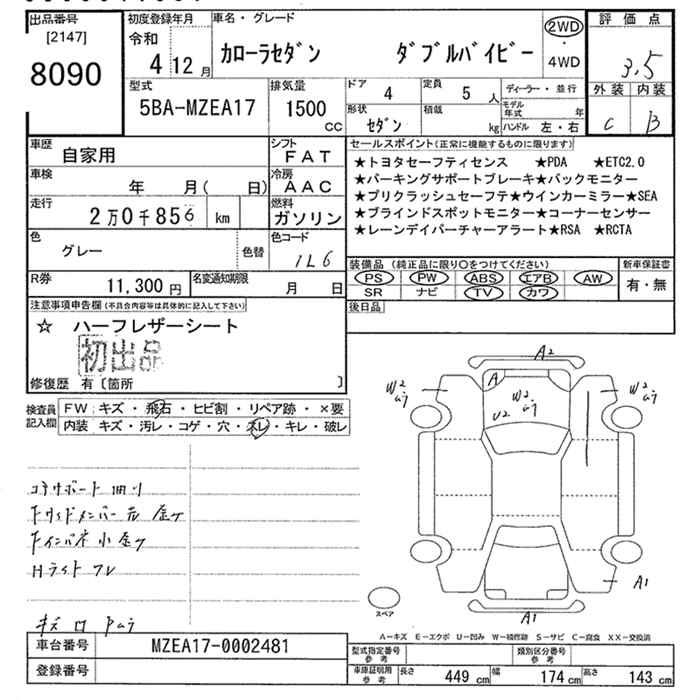 出品番号
[2147]
8090
初度登録年月
令和
4 12 月
車名・グレード
カローラセダン ダブルバイビー
2WD
・
4WD
評価点
3.5
外装 内装
C B
型式
5BA-MZEA17
排気量
1500
CC
ドア 4
定員 5 人
形状 セダン
積載 kg
ディーラー・並行
モデル年式 年
ハンドル 左・右
車歴
自家用
シフト
FAT
車検
年 月( 日)
冷房
AAC
走行
2万0千856 km
燃料
ガソリン
色
グレー
色替
色コード
1L6
R券
11,300 円
名変通知期限
月 日
セールスポイント(正常に機能するものに限ります)
★トヨタセーフティセンス ★PDA ★ETC2.0
★パーキングサポートブレーキ★バックモニター
★プリクラッシュセーフテ★ウインカーミラー★SEA
★ブラインドスポットモニター★コーナーセンサー
★レーンデイパーチャーアラート★RSA ★RCTA
装備品(純正品に限り○をつけてください)
PS PW ABS エアB AW
SR ナビ TV カワ
新車保証書
有・無
後日品
注意事項申告欄(不具合内容等は具体的に記入して下さい)
☆ ハーフレザーシート
初出品
修復歴 有〔箇所 〕
検査員
記入欄
FW キズ・飛石・ヒビ割・リペア跡・×要
内装 キズ・汚レ・コゲ・穴・スレ・キレ・破レ
A2
W2
A
W2
U2
W2
A1
A1
スペア
コアサポート 凹り
Hライト スレ
A-キズ E-エクボ U-凹み W-補修跡 S-サビ C-腐食 XX-交換済
車台番号
MZEA17-0002481
登録番号
型式指定番号
参考
類別区分番号
参考
車庫証明用
参考
長さ 449 cm 幅 174 cm 高さ 143 cm